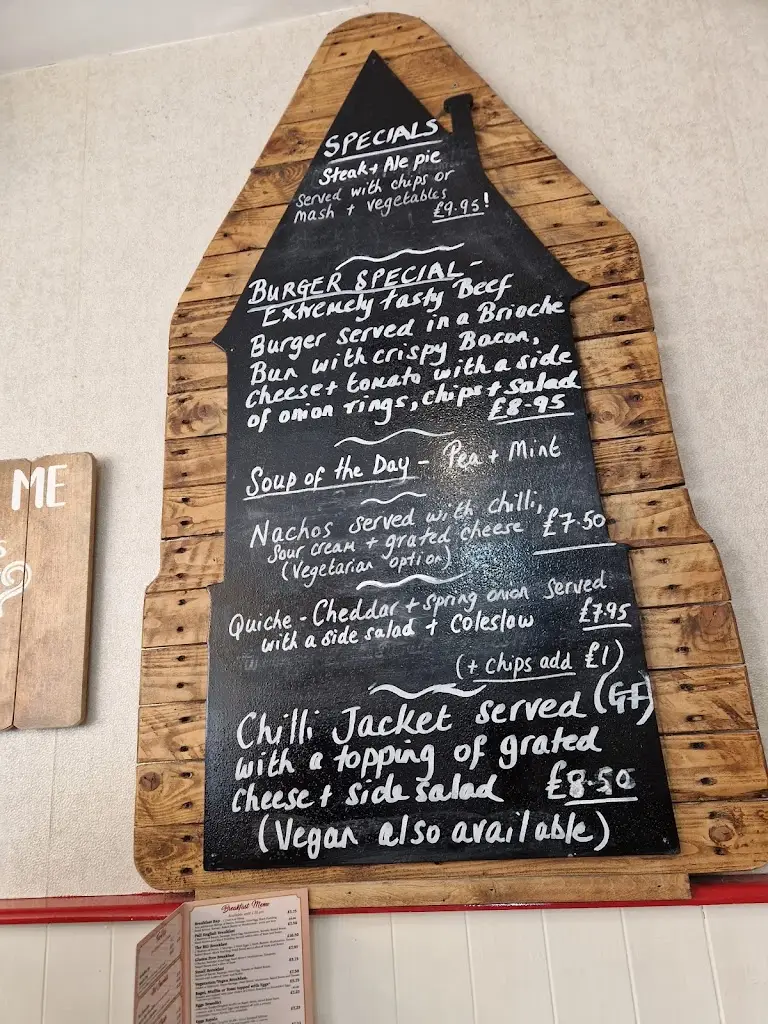 SPECIALS
Steak + Ale pie
served with chips or
mash + vegetables
£9.95!
BURGER SPECIAL -
Extremely tasty Beef
Burger served in a Brioche
Bun with crispy Bacon,
cheese + tomato with a side
of onion rings, chips + salad
£8.95
Soup of the Day - Pea + Mint
Nachos served with chilli,
sour cream + grated cheese £7.50
(Vegetarian option)
Quiche - Cheddar + spring onion served
with a side salad + Coleslaw £7.95
(+ chips add £1)
Chilli Jacket served (GF)
with a topping of grated
cheese + side salad £8.50
(Vegan also available)
ME
Breakfast Menu